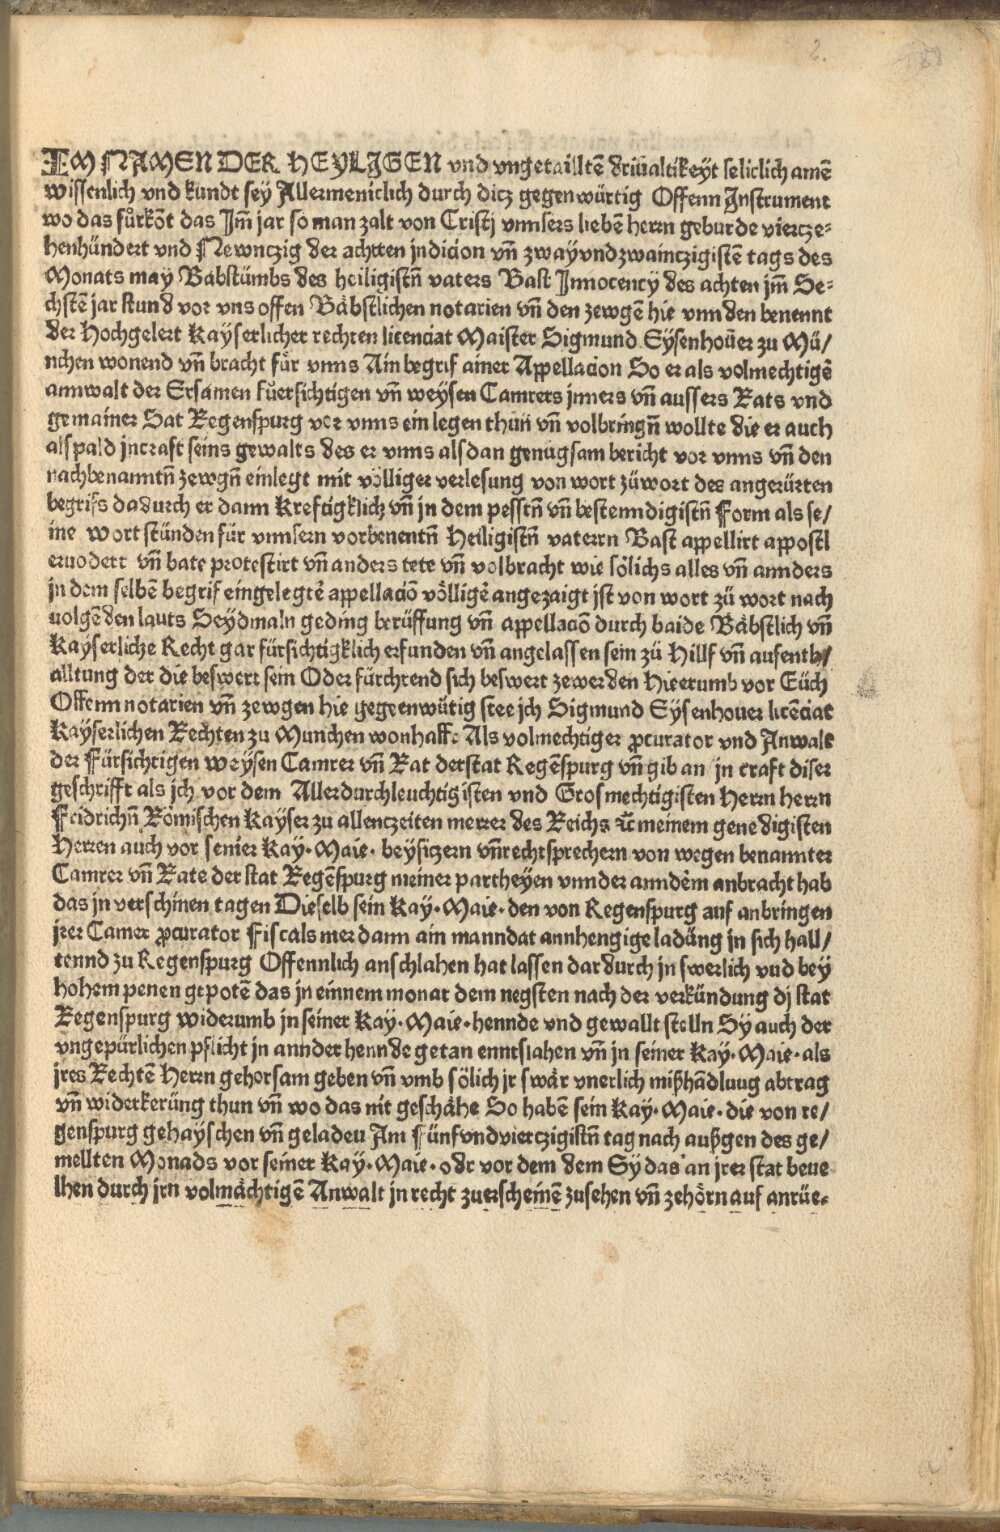 2.
IM NAMEN DER HEYLIGEN vnd vngetailltē driualtikeyt seliclich amē
wissenlich vnd kundt sey Allermeniclich durch dicz gegenwürtig Offenn Instrument
wo das fůrkōt das Im̄ jar so man zalt von Cristj vnnsers liebē herrn geburde viercze⸗
henhündert vnd Newnczig der achtten jndicion vn̄ zwayvndzwainczigistē tags des
Monats may Bäbstůmbs des heiligistn̄ vaters Bast Innocency des achten jm̄ Se⸗
chstē jar stund vor vns offen Bäbstlichen notarien vn̄ den zewgē hie vnnden benennt
der Hochgelert Kayserlicher rechten licenciat Maister Sigmund Eysenhouer zu Mü/
nchen wonend vn̄ bracht für vnns Ain begrif ainer Appellacion So er als volmechtigē
annwalt der Ersamen fůersichtigen vn̄ weysen Camrers jnners vn̄ aussers Rats vnd
gemainer Sat Regenspurg vor vnns ein legen thun vn̄ volbringn̄ wollte die er auch
alspald jncraft seins gewalts des er vnns alsdan genůgsam bericht vor vnns vn̄ den
nachbenanntn̄ zewgn̄ einlegt mit völliger verlesung von wort zůwort des angerürten
begrifs dadurch er dann kreftigklich vn̄ jn dem pesstn̄ vn̄ bestenndigistn̄ Form als se/
ine wort stůnden für vnnsern vorbenentn̄ Heiligistn̄ vaterrn Bast appellirt appostl
eruodert vn̄ bate protestirt vn̄ anders tete vn̄ volbracht wie sölichs alles vn̄ annders
jn dem selbē begrif eingelegtē appellaciō völligē angezaigt jst von wort zů wort nach
uolgēden lauts Seydmaln geding berüffung vn̄ appellaciō durch baide Bäbstlich vn̄
Kayserliche Recht gar fürsichtigklich erfunden vn̄ angelassen sein zů Hillf vn̄ aufenth/
alltung der die beswert sein Oder fürchtend sich beswert zewerden Hierumb vor Eüch
Offenn notarien vn̄ zewgen hie gegeenwütig stee jch Sigmund Eysenhouer licēciat
Kayserlichen Rechten zu Munchen wonhafft Als volmechtiger ꝓcurator vnd Anwalt
der Fürsichtigen weysen Camrer vn̄ Rat derstat Regēspurg vn̄ gib an jn craft diser
geschrifft als jch vor dem Allerdurchleuchtigisten vnd Grosmechtigisten Herrn herrn
Fridrichn̄ Römischen Kayser zu allenczeiten merrer des Reichs ꝛc̄ meinem genedigisten
Herren auch vor seiner Kay. Maie. beysitzern vn̄rechtsprechern von wegen benannter
Camrer vn̄ Rate der stat Regēspurg meiner partheyen vnnder anndem anbracht hab
das jn verschinen tagen Dieselb sein Kay. Maie. den von Regenspurg auf anbringen
jrer Camer ꝓcurator Fiscals mer dann ain manndat annhengige ladůng jn sich hall/
tennd zu Regenspurg Offennlich anschlahen hat lassen dar durch jn swerlich vnd bey
hohem penen gepotē das jn einnem monat dem negsten nach der verkündung dj stat
Regenspurg widerumb jn seiner Kay. Maie. hennde vnd gewallt stelln Sy auch der
vngepürlichen pflicht jn annder hennde getan enntslahen vn̄ jn seiner Kay. Maie. als
jres Rechtē Herrn gehorsam geben vn̄ vmb sölich jr swär vnerlich mißhādluug abtrag
vn̄ widerkerůng thun vn̄ wo das nit geschähe So habē sein Kay. Maie. die von re/
genspurg gehayschen vn̄ geladeu Am Fünfvndvierczigistn̄ tag nach außgen des ge/
mellten Monads vor seiner Kay. Maie. odr vor dem dem Sy das an jrer stat beue
lhen durch jrn volmächtigē Anwalt jn recht zuerscheinē zusehen vn̄ zehörn auf anrüe⸗